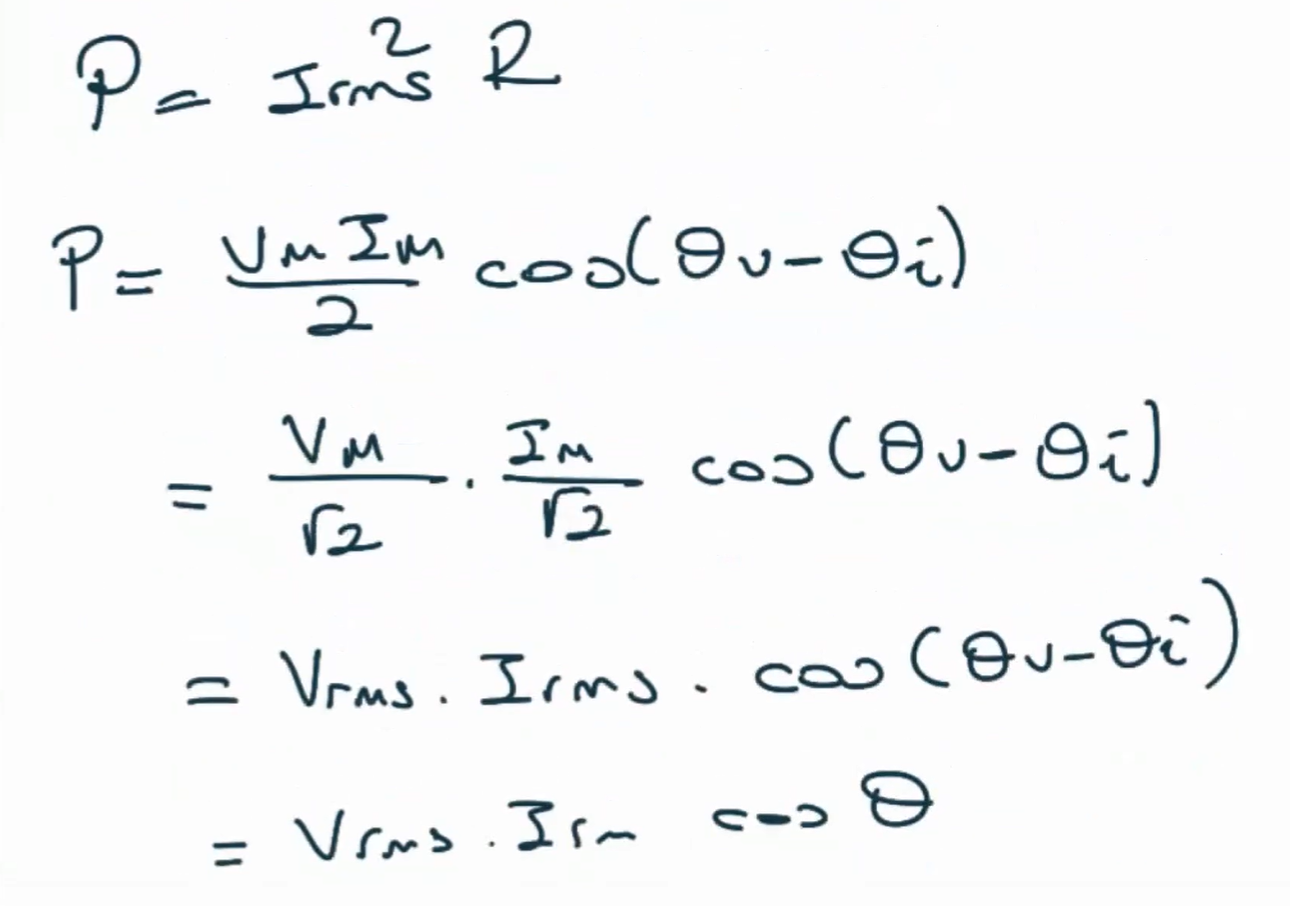 P = Irms² R
P = VM IM / 2 cos(θv - θi)
= VM / √2 . IM / √2 cos(θv - θi)
= Vrms . Irms . cos(θv - θi)
= Vrms . Irm cos θ